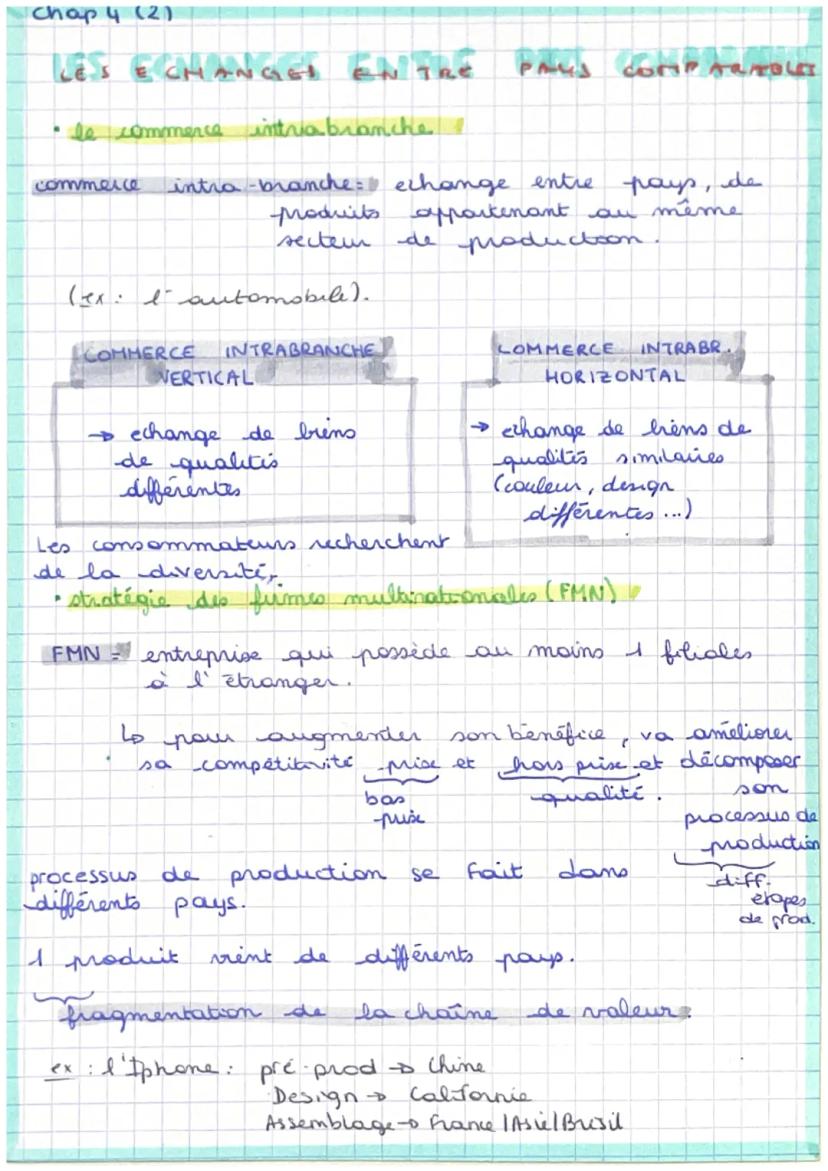 Chap 4 (2)
LES ECHANGES ENTRE PAYS COMPARABLES
• le commerce intrabranche
commerce intra-branche = echange entre pays, de
produits appartenant au même
secteur de production.
(ex : l'automobile).
COMMERCE INTRABRANCHE
VERTICAL
→ echange de biens
de qualités
différentes
COMMERCE INTRABR.
HORIZONTAL
→ echange de biens de
qualités similaires
(couleur, design
différentes ...)
Les consommateurs recherchent
de la diversité,
• stratégie des firmes multinationales (FMN)
FMN = entreprise qui possède au moins 1 filiales
à l'étranger.
↳ pour augmender son bénéfice, va améliorer
sa compétitivité prix et hors prix et décomposer
bas
prix
qualité.
son
processus de
production
diff.
etapes
de prod.
processus de production se fait dans
différents pays.
1 produit vient de différents pays.
fragmentation de la chaîne de valeur.
ex : l'Iphone : pré-prod → Chine
Design → Californie
Assemblage → France/Asie/Brésil